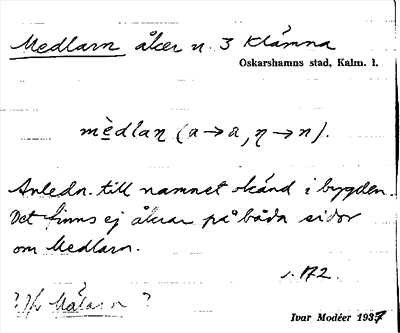 Medlarn åker n. 3 Klämna
Oskarshamns stad, Kalm. l.
mèdlan (a→a, η→n).
Anledn. till namnet okänd i bygden.
Det finns ej åkrar på båda sidor
om Medlarn.
s. 172.
? Mälarn ?
Ivar Modéer 1937